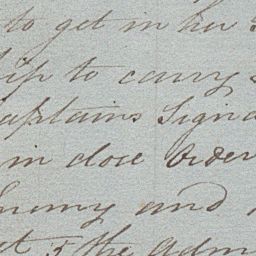 to get in her
ship to carry
Captains Signa
in close Order
Enemy and
at 5 the Adm